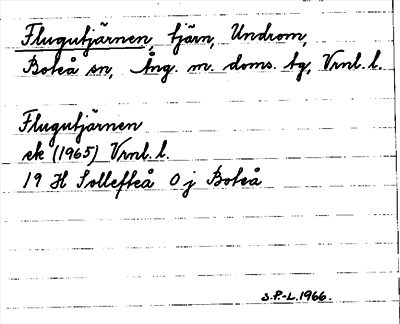 Flugutjärnen, tjärn, Undrom,
Boteå sn, Ång. m. doms. tg, Vrnl. l.
Flugutjärnen
ek (1965) Vrnl. l.
19 H Sollefteå 0 j Boteå
S.P.-L. 1966.